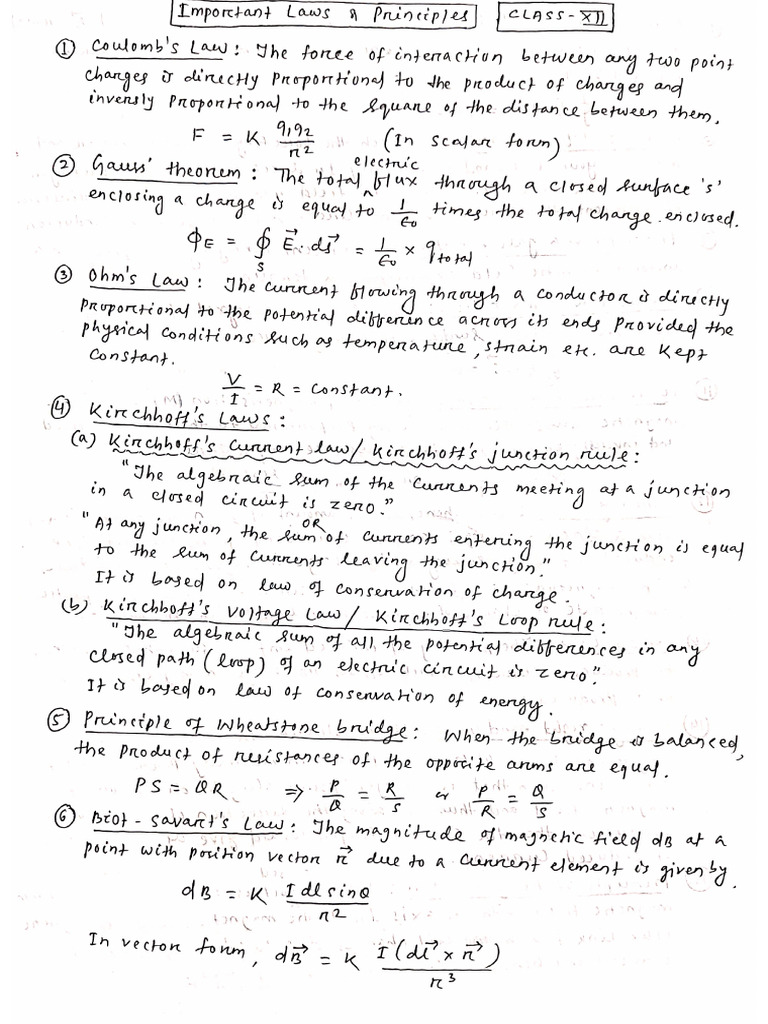 Important Laws & Principles CLASS - XII
① Coulomb's Law : The force of interaction between any two point
charges is directly proportional to the product of charges and
inversly proportional to the square of the distance between them.
F = K q₁q₂/r² (In scalar form)
② Gauss' theorem : The total electric flux through a closed surface 's'
enclosing a charge is equal to 1/ε₀ times the total charge enclosed.
ΦE = ∮s E⃗. ds⃗ = 1/ε₀ × q total
③ Ohm's Law : The current flowing through a conductor is directly
proportional to the potential difference across its ends provided the
physical conditions such as temperature, strain etc. are kept
constant.
V/I = R = constant.
④ Kirchhoff's Laws :
(a) Kirchhoff's current law / Kirchhoff's junction rule :
"The algebraic sum of the currents meeting at a junction
in a closed circuit is zero."
OR
"At any junction, the sum of currents entering the junction is equal
to the sum of currents leaving the junction."
It is based on law of conservation of charge.
(b) Kirchhoff's voltage Law / Kirchhoff's Loop rule :
"The algebraic sum of all the potential differences in any
closed path (loop) of an electric circuit is zero".
It is based on law of conservation of energy.
⑤ Principle of Wheatstone bridge : When the bridge is balanced,
the product of resistances of the opposite arms are equal.
PS = QR ⇒ P/Q = R/S or P/R = Q/S
⑥ Biot - Savart's Law : The magnitude of magnetic field dB at a
point with position vector r⃗ due to a current element is given by.
dB = K I dl sinθ/r²
In vector form, dB⃗ = K I (dl⃗ × r⃗)/r³